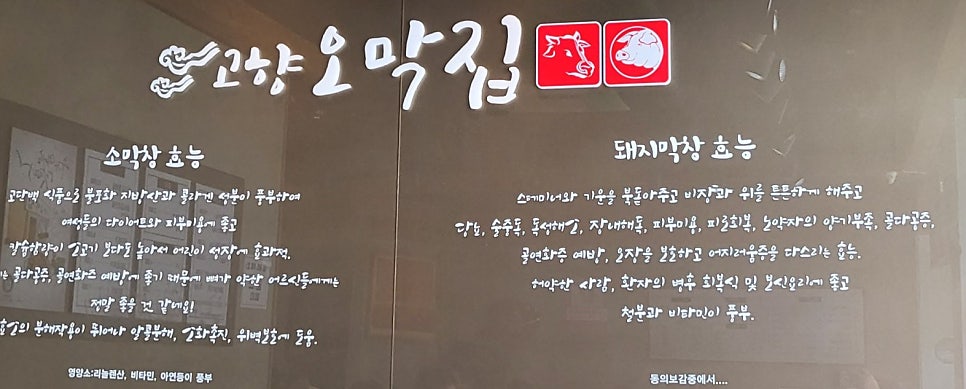 고향 오막집
소막창 효능
고단백 식품으로 불포화 지방산과 콜라겐 성분이 풍부하여
여성들의 다이어트와 피부미용에 좋고
칼슘함량이 소고기 보다도 높아서 어린이 성장에 효과적.
는 골다공증, 골연화증 예방에 좋기 때문에 뼈가 약한 어르신들에게는
정말 좋을 것 같네요!
효소의 분해작용이 뛰어나 알콜분해, 소화촉진, 위벽보호에 도움.
영양소:리놀렌산, 비타민, 아연등이 풍부
돼지막창 효능
스테미너와 기운을 북돋아주고 비장과 위를 튼튼하게 해주고
당뇨, 술중독, 독성해소, 장내해독, 피부미용, 피로회복, 노약자의 양기부족, 골다공증,
골연화증 예방, 오장을 보호하고 어지러움증을 다스리는 효능.
허약한 사람, 환자의 병후 회복식 및 보신요리에 좋고
철분과 비타민이 풍부.
동의보감중에서....